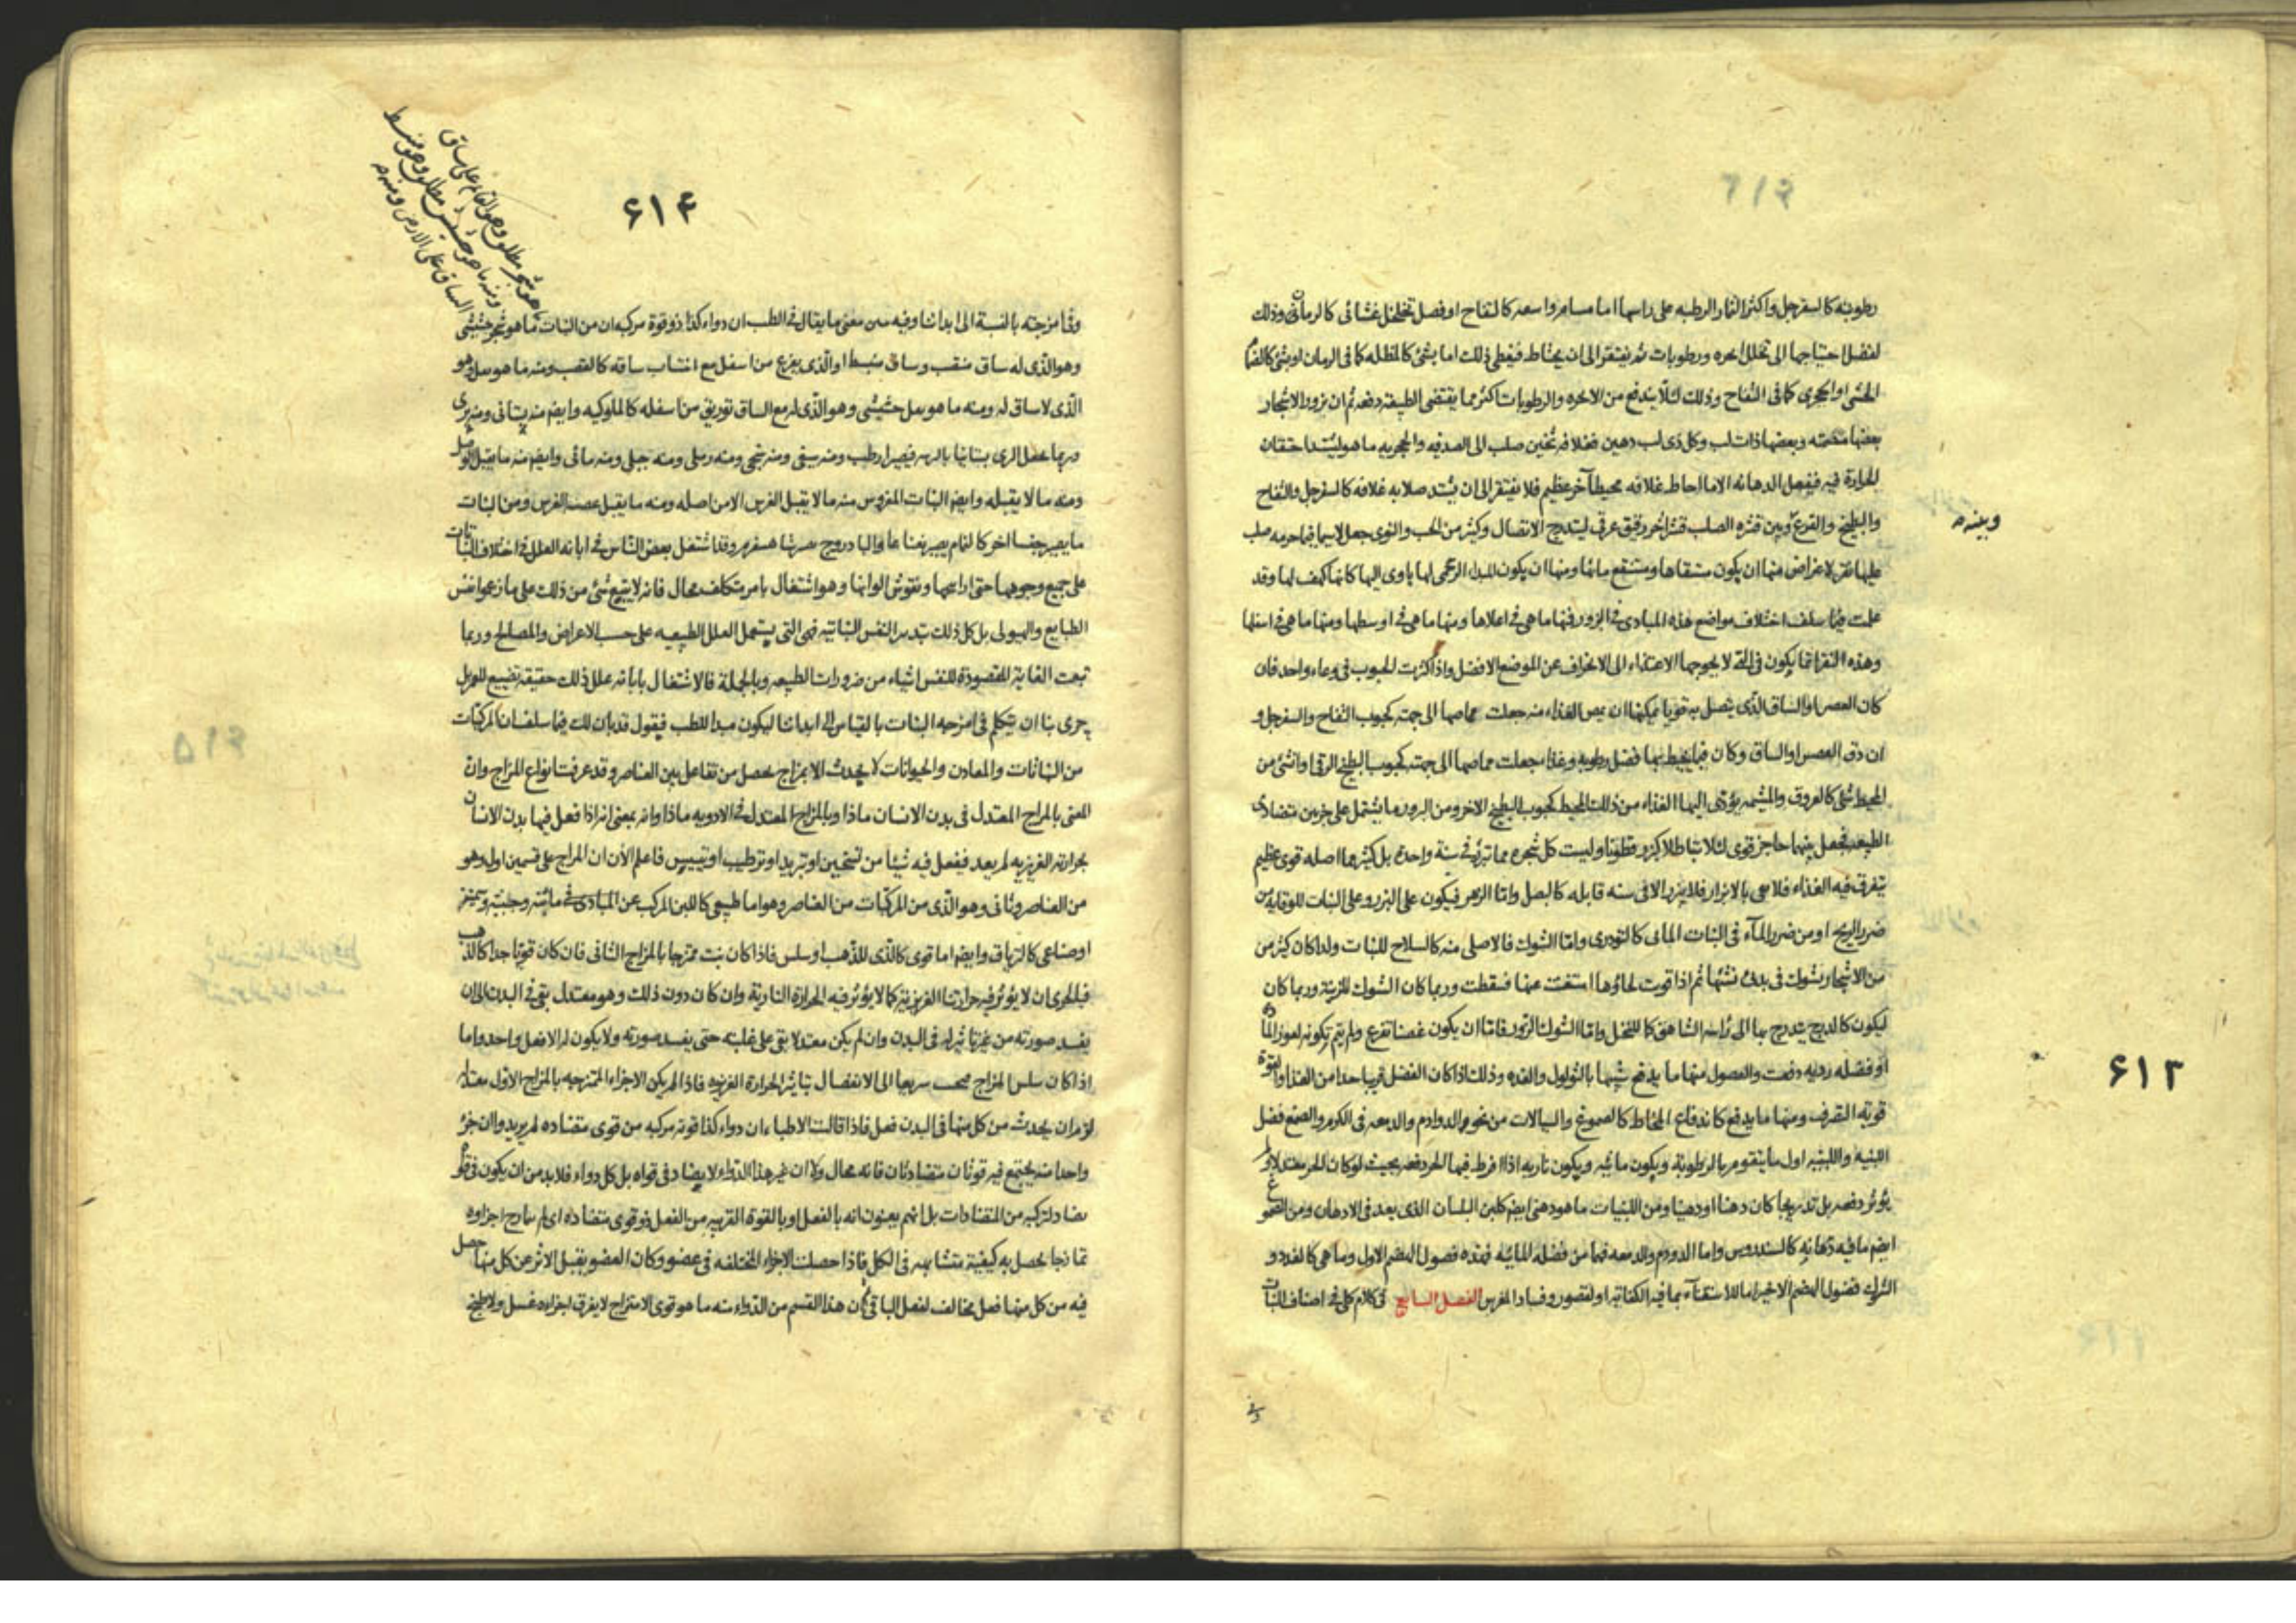 رطوبته كالسفرجل واكثر الثمار الرطبه على راسها اما مسام واسعه كالتفاح او فصل تخلخل غشائى كالرمان وذلك
لفضل احتياجها الى تحلل ابخره ورطوبات ثم يفتقر الى ان يحتاط فيغطى ذلك اما بشئ كالمظله كما فى الرمان او بشئ كالضمام
الخشن او الحجرى كما فى التفاح وذلك لئلا يندفع من الابخره والرطوبات اكثر مما يقتضى الطبيعة دفعه ثم ان بزور الاشجار
بعضها مصمته وبعضها ذات لب وكل ذى لب دهين فغلافه ثخين صلب الى الصدفيه والحجريه ما هو ليشتد احتقان
الحرارة فيه فيفعل الدهانه الا ما احاط غلافه محيط آخر عظيم فلا يفتقر الى ان يشتد صلابه غلافه كالسفرجل والتفاح
والبطيخ والقرع وبين قشره الصلب قشر آخر رقيق عرقى ليتدرج الاتصال وكثير من الحب والنوى جعل لا سيما فيما جرمه صلب
وبينه
عليها نقر لاغراض منها ان يكون مستقاها ومستنقع مائها ومنها ان يكون المبداء الرحمى لها ياوى اليها كانها كهف لها وقد
علمت فيما سلف اختلاف مواضع هذه المبادى فى البزور فمنها ما هى فى اعلاها ومنها ما هى فى اوسطها ومنها ما هى فى اسفلها
وهذه النقر انما يكون فى التى لا يحوجها الاغتذاء الى الانحراف عن الموضع الافضل واذا كثرت الحبوب فى وعاء واحد فان
كان الغصن او الساق الذى يتصل به قويا يمكنها ان يمص الغذاء منه جعلت مماصها الى جهته كحبوب التفاح والسفرجل و
ان دق الغصن او الساق وكان فيما يحيط بها فضل رطوبه وغذا جعلت مماصها الى جهته كحبوب البطيخ الرقى وانشئ من
المحيط شئ كالعروق والمشيمه يؤدى اليها الغذاء من ذلك المحيط كحبوب البطيخ الاخر ومن البزور ما يشتمل على جزءين متضادى
الطبيعه فجعل بينهما حاجز قوى لئلا يتباطلا كبزر قطونا وليست كل شجره مما تبزر فى سنة واحده بل كثير مما اصله قوى عظيم
يتفرق فيه الغذاء فلا يعى بالابزار فلا يبزر الا فى سنه قابله كالبصل واما الزهر فيكون على البزر وعلى النبات للوقايه من
ضرر الريح او من ضرر الماء فى النبات المائى كالتودرى واما الشوك فالاصلى منه كالسلاح للنبات ولذا كان كثير من
من الاشجار يشوك فى بدء نشئها ثم اذا قويت لحاؤها استغنت عنها فسقطت وربما كان الشوك للزينة وربما كان
ليكون كالدرج يتدرج بها الى راسه الشاهق كما للنخل واما الشوك الزور فاما ان يكون غصنا تفرع ولم يتم تكونه لعوز المادة
او فضله رديه دفعت والفصول منها ما يدفع شبيها بالثولول والغدد وذلك اذا كان الفضل قريبا جدا من الغذاء والقوة
قويه التصرف ومنها ما يدفع كاندفاع المخاط كالصموغ والسيالات من نحو الدوادم والدمعه فى الكرم والصمغ فضل
اللبنيه واللبنيه اول ما يتقوم بها الرطوبة ويكون مائيه ويكون ناريه اذا افرط فيها الحر دفعه بحيث لو كان الحر معتدلا ولم
يؤثر دفعه بل تدريجا كان دهنا او دهينا ومن اللبنيات ما هو دهنى ايضا كلبن البلسان الذى يعد فى الادهان ومن الصموغ
ايضا ما فيه دهانة كالسندروس واما الدودم والدمعه فهما من فضله المائيه فهذه فصول الهضم الاول وما هى كالغدد و
الشوك فصول الهضم الاخير اما للاستغناء بما فيه الكفاية او لقصور وفساد المغرس الفصل السابع فى كلام كلى فى اصناف النبات
۶۱۳
۶۱۴
هو شجر مطلق وهو القائم على ساق
ومنه ما هو حشيش مطلق وهو منبسط
الساق على الارض ومنه
وفى امزجته بالنسبة الى ابداننا وفيه سن معنى ما يقال فى الطب ان دواء كذا ذو قوة مركبه ان من النبات ما هو شجر حشيشى
وهو الذى له ساق منتصب وساق منبسط او الذى يفرع من اسفل مع انتصاب ساقه كالقصب ومنه ما هو بقل وهو
الذى لا ساق له ومنه ما هو بقل حشيشى وهو الذى له مع الساق توريق من اسفله كالملوكيه وايضا منه بستانى ومنه برى
وربما جعل البرى بستانيا بالتربيه فيصير ارطب ومنه سيفى ومنه ومنه رملى ومنه جبلى ومنه مائى وايضا منه ما يقبل الوصل
ومنه ما لا يقبله وايضا النبات المغروس منه ما لا يقبل الغرس الا من اصله ومنه ما يقبل غصنه الغرس ومن النبات
ما يصير جنسا اخر كالنمام يصير نعناعا والباذروج يصير شاهسفرم وقد اشتغل بعض الناس فى ابانه العلل فى اختلاف النبات
على جميع وجوهها حتى ارايحها ونقوش الوانها وهو اشتغال بامر متكلف محال فانه لا يتبع شئ من ذلك على ما زعموا نفس
الطبايع والهيولى بل كل ذلك بتدبير النفس النباتيه فهى التى يستعمل العلل الطبيعيه على حسب الاغراض والمصالح وربما
تبعت الغاية المقصودة للنفس اشياء من ضرورات الطبيعه وبالجملة فالاشتغال بابانه علل ذلك حقيقه تضييع للعمر بل
حرى بنا ان نتكلم فى امزجه النبات بالقياس الى ابداننا ليكون مبدا للطب فيقول قد بان لك فيما سلف ان المركبات
من النباتات والمعادن والحيوانات لا يحدث الا بمزاج يحصل من تفاعل بين العناصر وقد عرفت انواع المزاج وان
المعنى بالمزاج المعتدل فى بدن الانسان ماذا وبالمزاج المعتدل فى الادويه ماذا وانه بمعنى انه اذا فعل فيها بدن الانسان
بحرارته الغريزيه لم يعد فيفعل فيه شيئا من تسخين او تبريد او ترطيب او تيبيس فاعلم الآن ان المزاج على قسمين اول وهو
من العناصر وثانى وهو الذى من المركبات من العناصر وهو اما طبيعى كاللبن المركب عن المبادى فى مائيته وجبنيته وسمنيته
او صناعى كالترياق وايضا اما قوى كالذى للذهب او سلس فاذا كان نبت ممتزجا بالمزاج الثانى فان كان قويا جدا كالذهب
فبالحرى ان لا يؤثر فيه حرارتنا الغريزية كما لا يؤثر فيه الحرارة النارية وان كان دون ذلك وهو معتدل بقى فى البدن الى ان
يفسد صورته من غير تاثير له فى البدن وان لم يكن معتدلا بقى على غلبته حتى يفسد صورته ولا يكون له الا فعل واحد واما
اذا كان سلس المزاج مجيب سريعا الى الانفصال بتاثير الحرارة الغريزيه فاذا لم يكن الاجزاء الممتزجه بالمزاج الاول معتدله
لزم ان يحدث من كل منها فى البدن فعل فاذا قالت الاطباء ان دواء كذا قوته مركبه من قوى متضاده لم يريدوا ان جزءا
واحدا منه يجتمع فيه قوتان متضادتان فانه محال ولا ان غير هذا الدواء لا يضاد فى قواه بل كل دواء فلا بد من ان يكون فى قواه
تضاد لتركبه من المتضادات بل انهم يعنون انه بالفعل او بالقوة القريبه من الفعل ذو قوى متضاده اى لم يمازج اجزاوه
تمازجا يحصل به كيفية متشابهه فى الكل فاذا حصلت الاجزاء المختلفه فى عضو وكان العضو يقبل الاثر عن كل منها حصل
فيه من كل منها فعل مخالف لفعل الباقى ثم ان هذا القسم من الدواء منه ما هو قوى الامتزاج لا يفرق اجزاءه غسل ولا طبخ